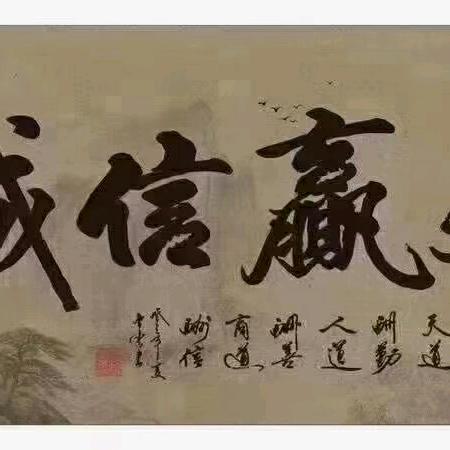 信贏
天道
酬勤
人道
酬善
商道
酬信